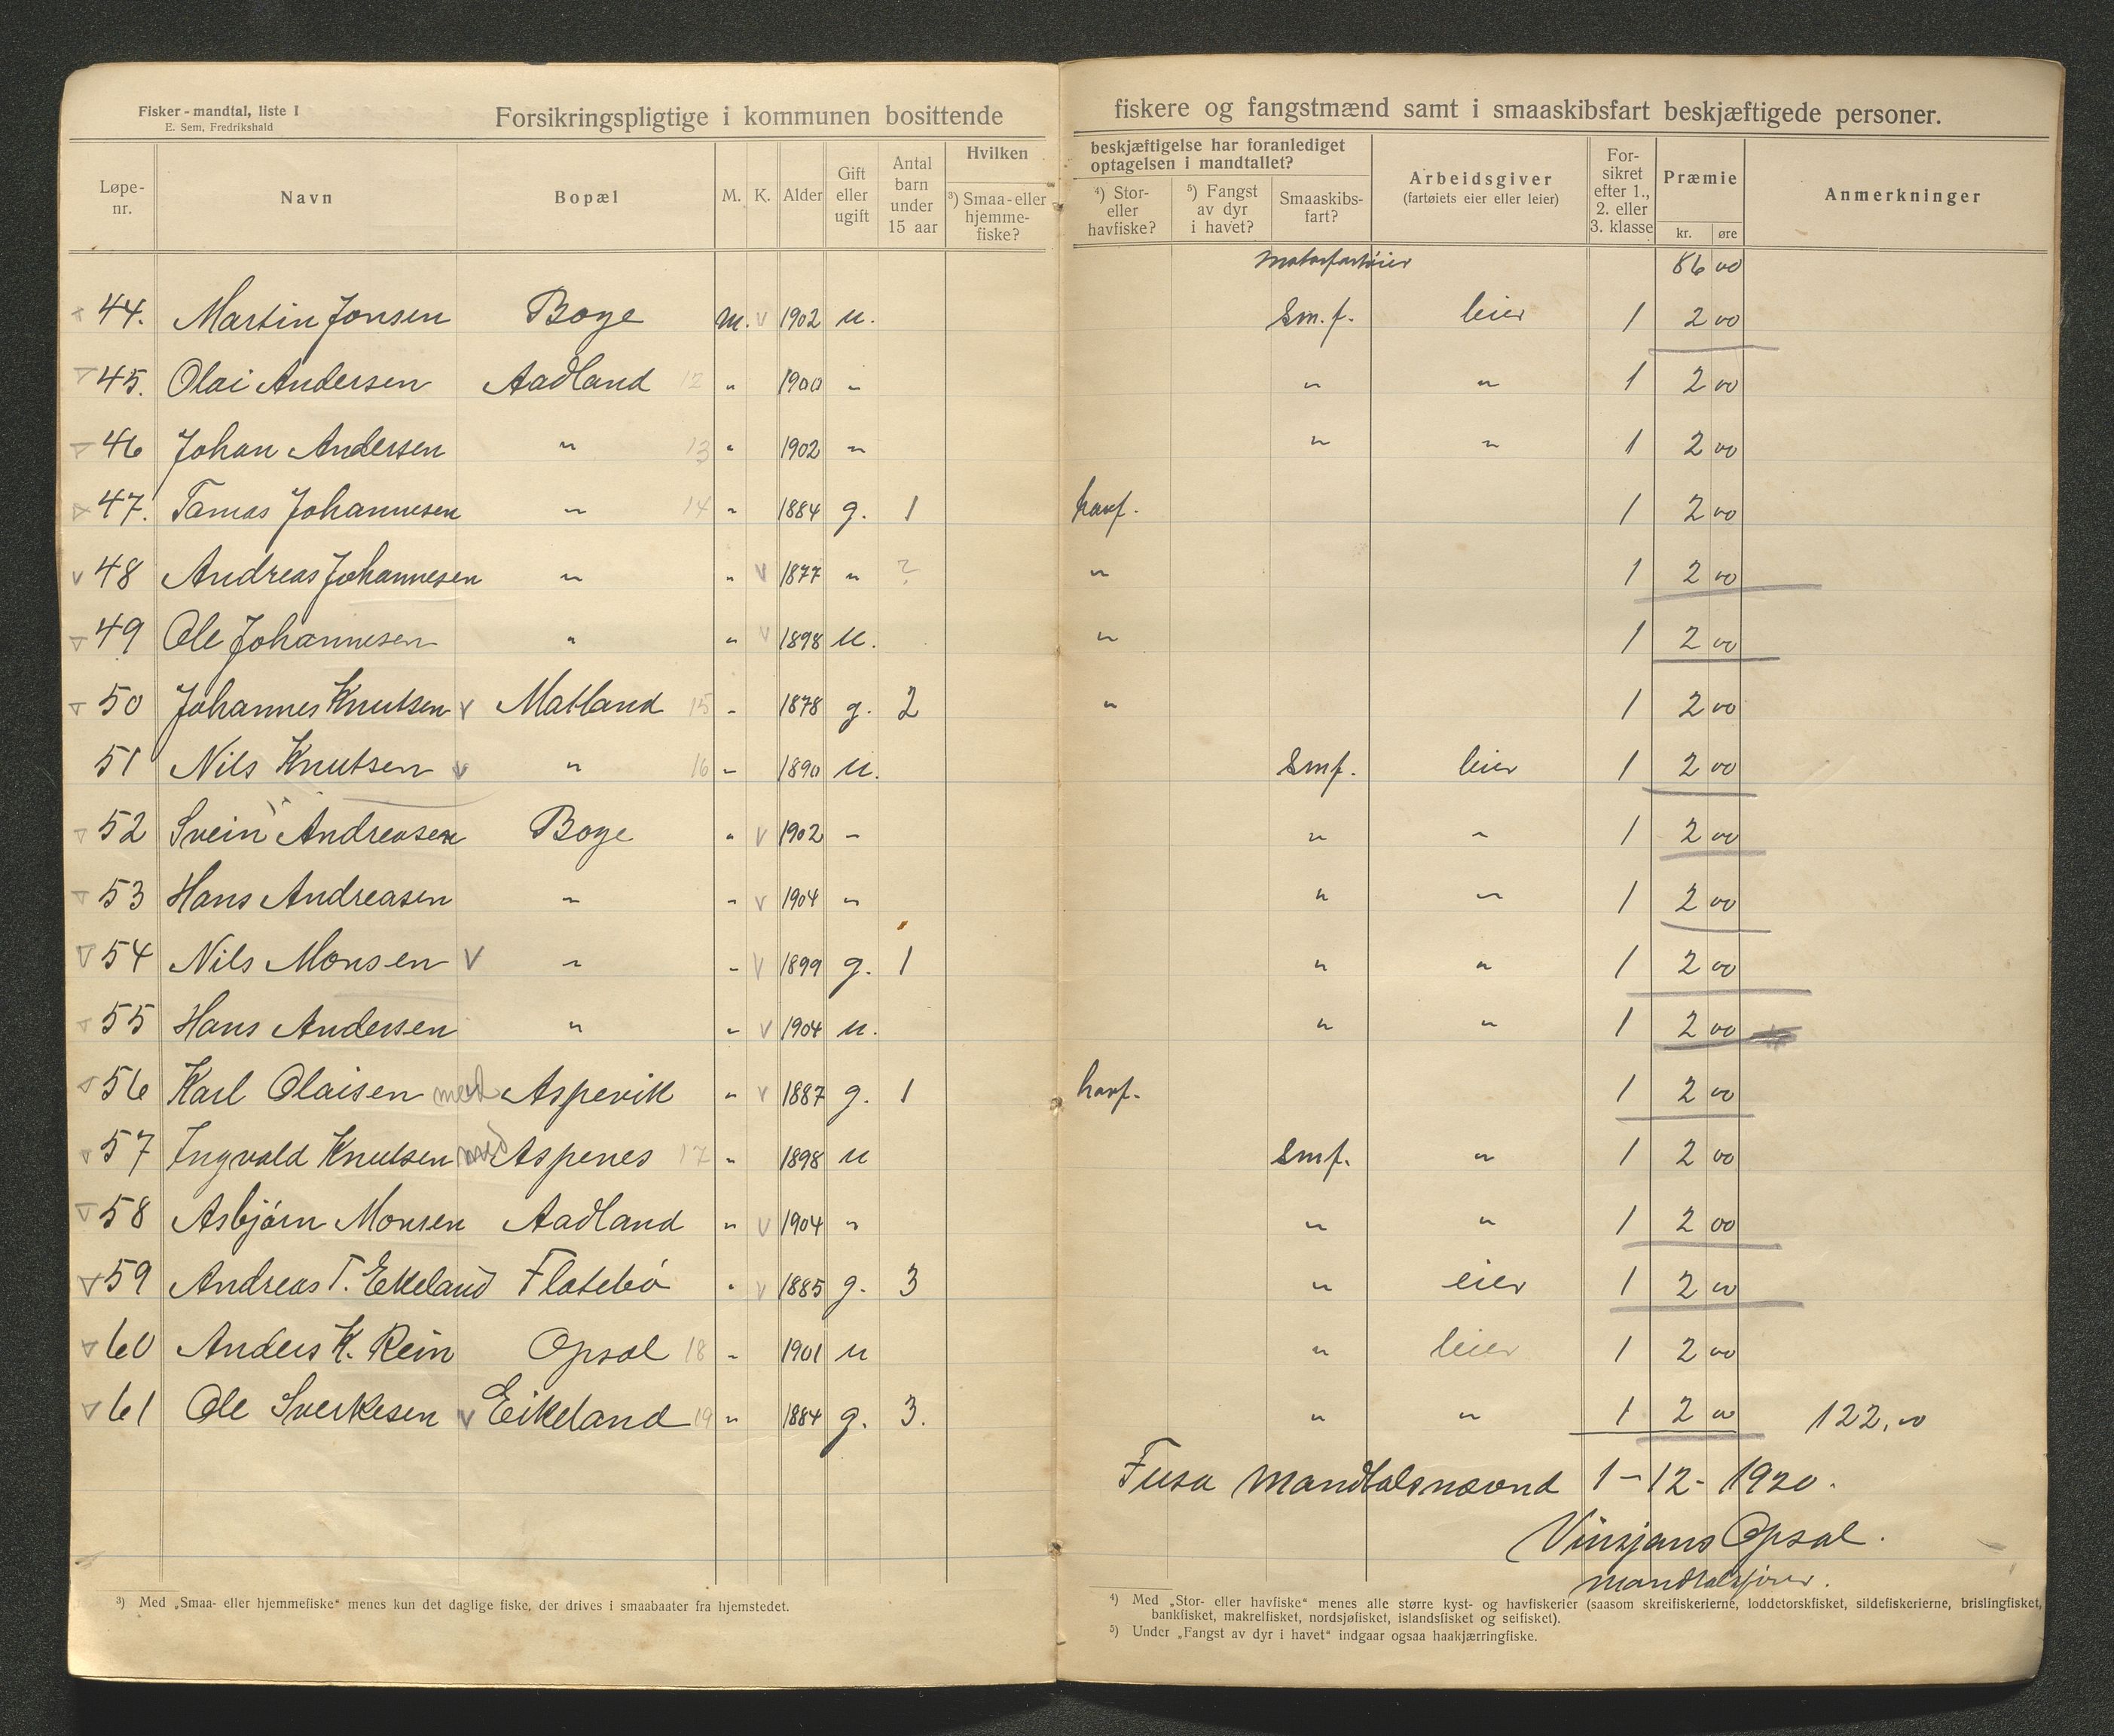 Fisker-mandtal, liste I
E. Sem, Fredrikshald
Forsikringspligtige i kommunen bosittende fiskere og fangstmænd samt i smaaskibsfart beskjæftigede personer.
Løpe-nr. Navn Bopæl M. K. Alder Gift eller ugift Antal barn under 15 aar Hvilken beskjæftigelse har foranlediget optagelsen i mandtallet? ³) Smaa- eller hjemme-fiske? ⁴) Stor- eller havfiske? ⁵) Fangst av dyr i havet? Smaaskibs-fart? Arbeidsgiver (fartøiets eier eller leier) For-sikret efter 1., 2. eller 3. klasse Præmie kr. øre Anmerkninger
motorfartöier 86 00
44. Martin Jonsen Boge M. v 1902 u. Sm.f. leier 1 2 00
45. Olai Andersen Aadland 12 " 1900 " " " 1 2 00
46 Johan Andersen " 13 " 1902 " " " 1 2 00
47. Tomas Johannesen " 14 " 1884 g. 1 havf. 1 2 00
v 48 Andreas Johannesen " " v 1877 " ? " 1 2 00
49 Ole Johannesen " " v 1898 u. " 1 2 00
50 Johannes Knutsen v Matland 15 " 1878 g. 2 " 1 2 00
51 Nils Knutsen v " 16 " 1890 u. Smf. leier 1 2 00
52 Svein Andreasen Boge " v 1902 " " " 1 2 00
53 Hans Andreasen " " v 1904 " " " 1 2 00
54 Nils Monsen v " " v 1899 g. 1 " " 1 2 00
55 Hans Andersen " " v 1904 u. " " 1 2 00
56 Karl Olaisen med Aspevik " v 1887 g. 1 havf. 1 2 00
57 Ingvald Knutsen med Aspenes 17 " 1898 u Smf. " 1 2 00
58 Asbjörn Monsen Aadland " v 1904 " " " 1 2 00
59 Andreas T. Ekeland Flatebö " v 1885 g. 3 " eier 1 2 00
60 Anders K. Rein Opsal 18 " 1901 u " leier 1 2 00
61 Ole Sverkesen v Eikeland 19 " 1884 g. 3. " " 1 2 00 122,00
Fusa mandtalsnævnd 1-12-1920.
Vinsjans Opsal.
mandtalsförer.
³) Med „Smaa- eller hjemmefiske" menes kun det daglige fiske, der drives i smaabaater fra hjemstedet.
⁴) Med „Stor- eller havfiske" menes alle større kyst- og havfiskerier (saasom skreifiskerierne, loddetorskfisket, sildefiskerierne, brislingfisket,
bankfisket, makrelfisket, nordsjøfisket, islandsfisket og seifisket).
⁵) Under „Fangst av dyr i havet" indgaar ogsaa haakjærringfiske.